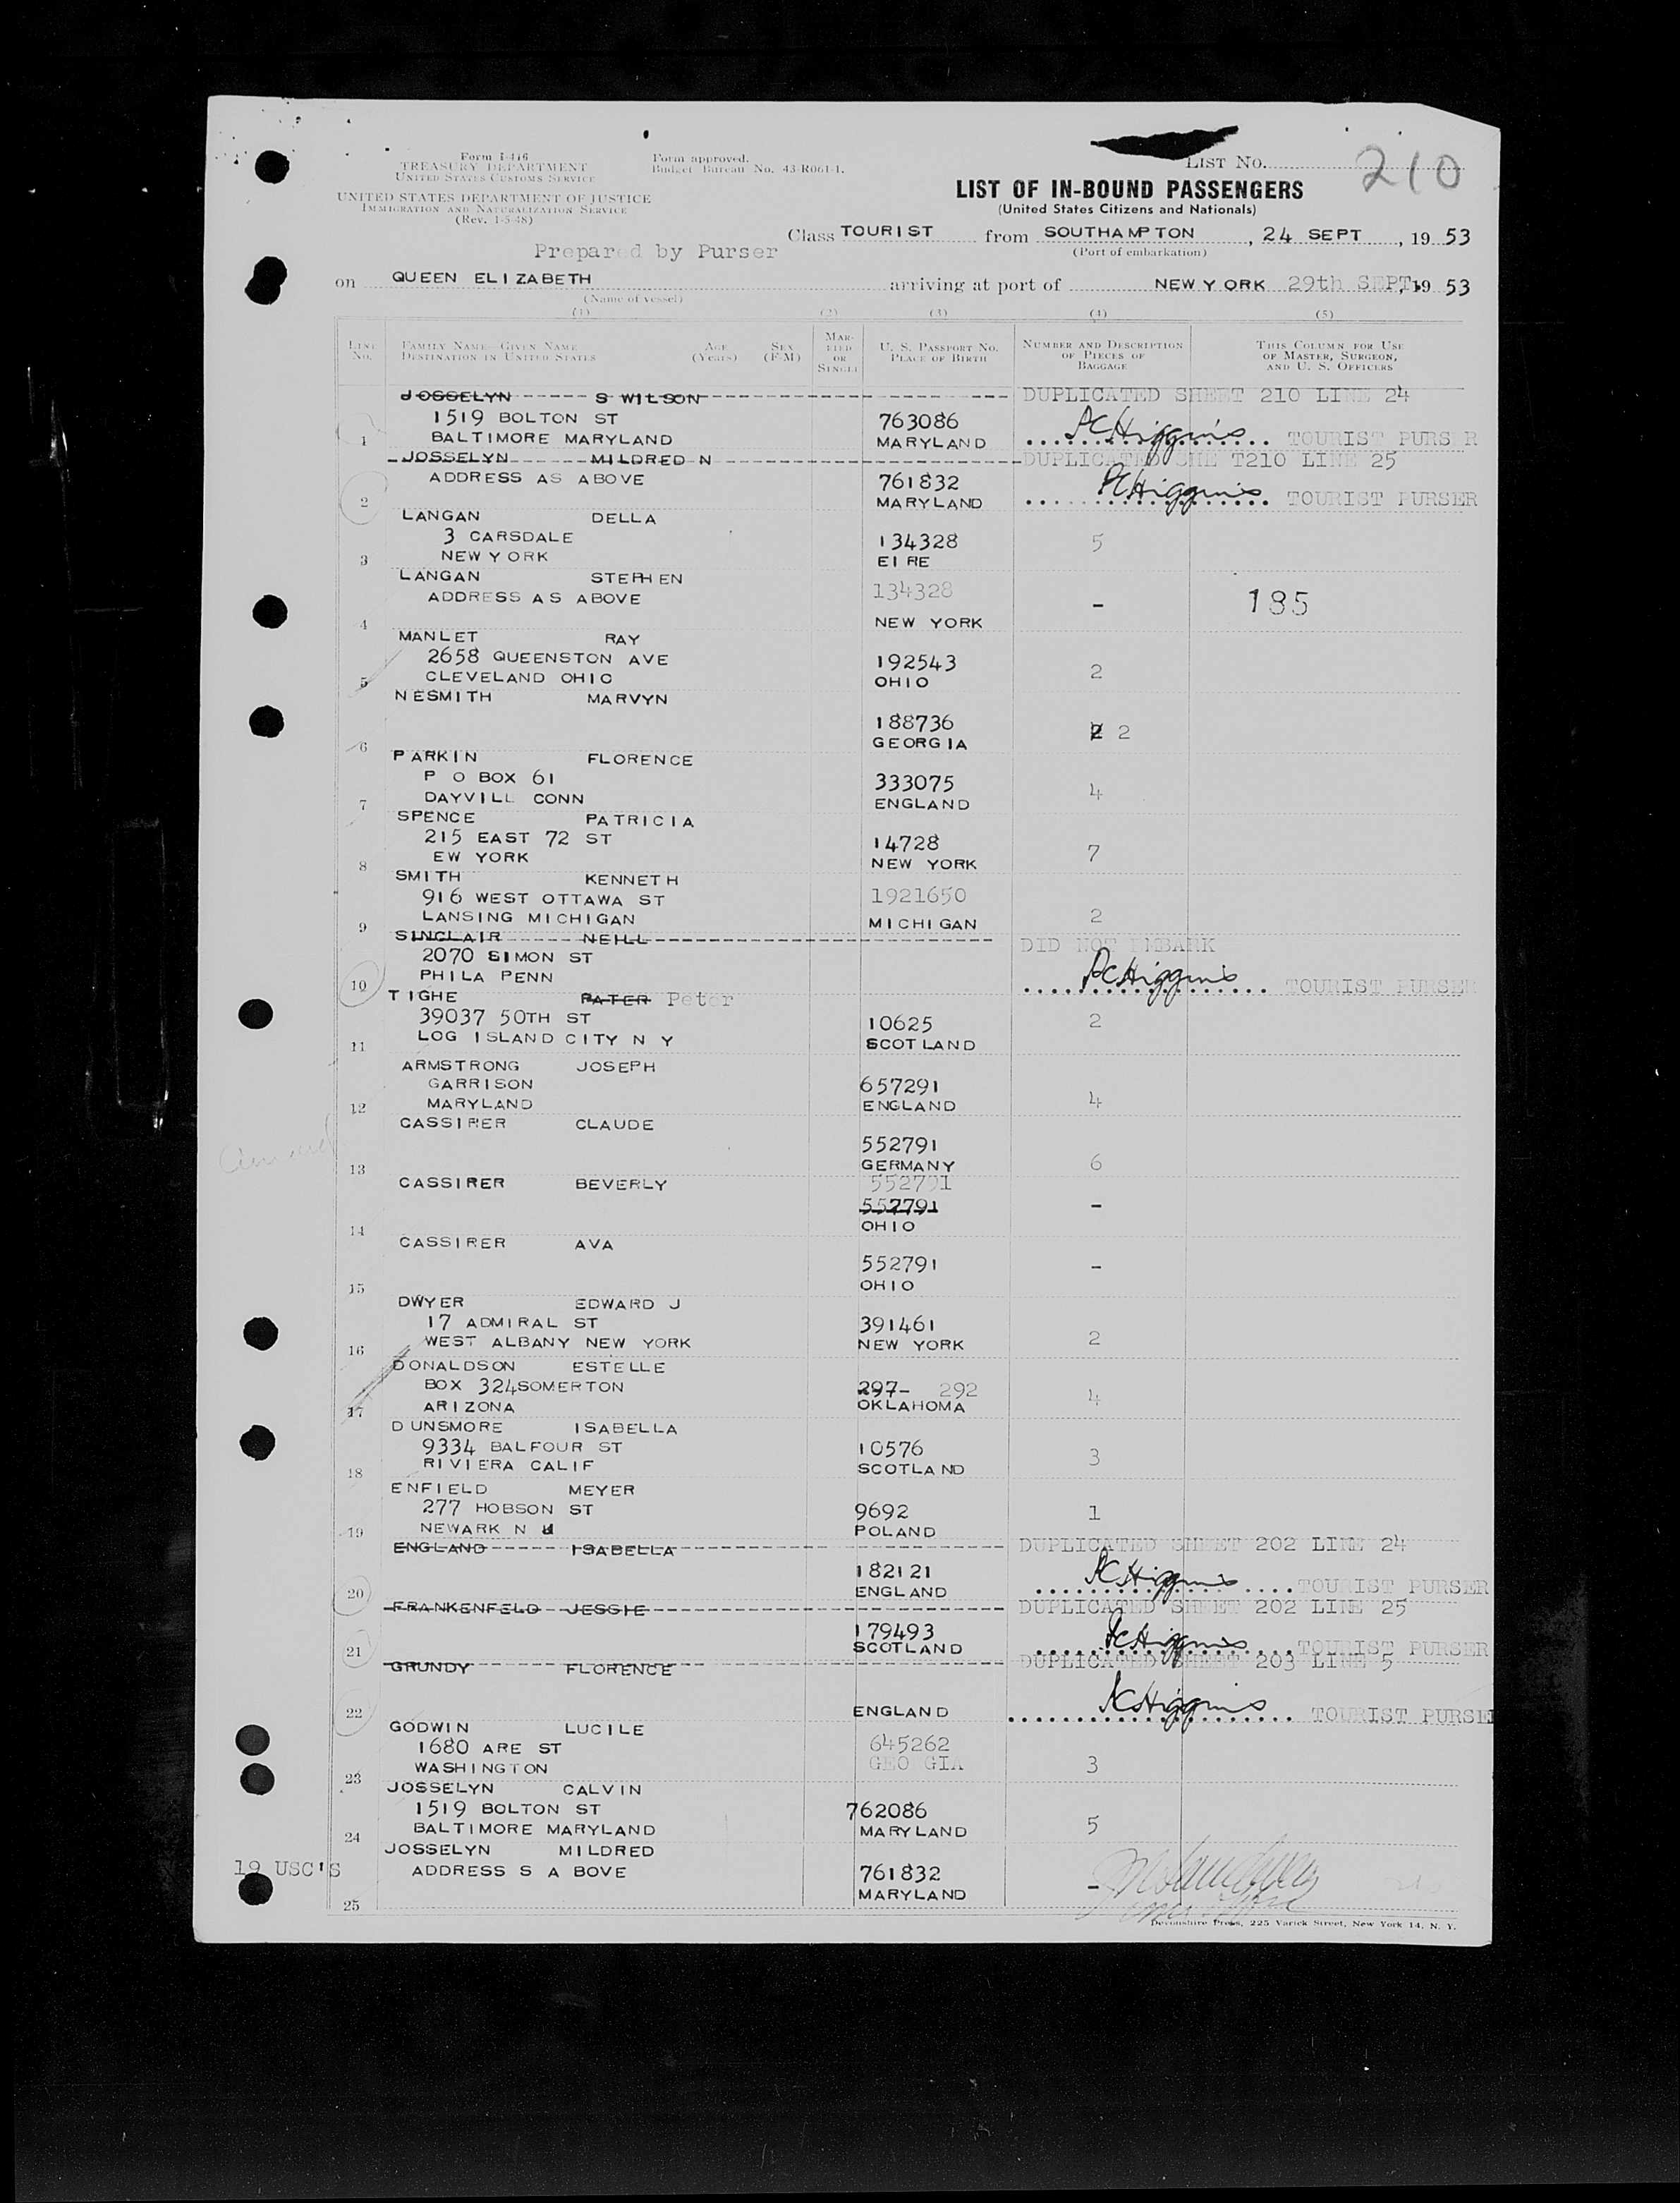 Form I-416
TREASURY DEPARTMENT
UNITED STATES CUSTOMS SERVICE
UNITED STATES DEPARTMENT OF JUSTICE
IMMIGRATION AND NATURALIZATION SERVICE
(Rev. 1-5-48)
Form approved.
Budget Bureau No. 43-R061-1.
LIST No. 210
LIST OF IN-BOUND PASSENGERS
(United States Citizens and Nationals)
Prepared by Purser
Class TOURIST from SOUTHAMPTON, 24 SEPT, 19 53
(Port of embarkation)
on QUEEN ELIZABETH arriving at port of NEW YORK 29th SEPT, 19 53
(Name of vessel)
(1) (2) (3) (4) (5)
LIST No. FAMILY NAME—GIVEN NAME DESTINATION IN UNITED STATES AGE (Years) SEX (F-M) MARRIED OR SINGLE U. S. PASSPORT NO. PLACE OF BIRTH NUMBER AND DESCRIPTION OF PIECES OF BAGGAGE THIS COLUMN FOR USE OF MASTER, SURGEON, AND U. S. OFFICERS
JOSSELYN S WILSON DUPLICATED SHEET 210 LINE 24
1519 BOLTON ST 763086
1 BALTIMORE MARYLAND MARYLAND PCHiggins TOURIST PURS R
JOSSELYN MILDRED N DUPLICATED SHE T210 LINE 25
ADDRESS AS ABOVE 761832
2 MARYLAND PCHiggins TOURIST PURSER
LANGAN DELLA
3 CARSDALE 134328 5
3 NEW YORK EIRE
LANGAN STEPHEN
ADDRESS AS ABOVE 134328 - 185
4 NEW YORK
MANLET RAY
2658 QUEENSTON AVE 192543 2
5 CLEVELAND OHIO OHIO
NESMITH MARVYN
188736 2 2
6 GEORGIA
PARKIN FLORENCE
P O BOX 61 333075 4
7 DAYVILL CONN ENGLAND
SPENCE PATRICIA
215 EAST 72 ST 14728 7
8 EW YORK NEW YORK
SMITH KENNETH
916 WEST OTTAWA ST 1921650
9 LANSING MICHIGAN MICHIGAN 2
SINCLAIR NEILL DID NOT EMBARK
2070 SIMON ST
10 PHILA PENN PCHiggins TOURIST PURSER
TIGHE PATER Peter
39037 50TH ST 10625 2
11 LOG ISLAND CITY N Y SCOTLAND
ARMSTRONG JOSEPH
GARRISON 657291
12 MARYLAND ENGLAND 4
CASSIRER CLAUDE
552791
13 GERMANY 6
CASSIRER BEVERLY 552791
552791 -
14 OHIO
CASSIRER AVA
552791 -
15 OHIO
DWYER EDWARD J
17 ADMIRAL ST 391461
16 WEST ALBANY NEW YORK NEW YORK 2
DONALDSON ESTELLE
BOX 324SOMERTON 297- 292 4
17 ARIZONA OKLAHOMA
DUNSMORE ISABELLA
9334 BALFOUR ST 10576 3
18 RIVIERA CALIF SCOTLAND
ENFIELD MEYER
277 HOBSON ST 9692 1
19 NEWARK N J POLAND
ENGLAND ISABELLA DUPLICATED SHEET 202 LINE 24
182121
20 ENGLAND PCHiggins TOURIST PURSER
FRANKENFELD JESSIE DUPLICATED SHEET 202 LINE 25
179493
21 SCOTLAND PCHiggins TOURIST PURSER
GRUNDY FLORENCE DUPLICATED SHEET 203 LINE 5
22 ENGLAND PCHiggins TOURIST PURSER
GODWIN LUCILE
1680 ARE ST 645262
23 WASHINGTON GEO GIA 3
JOSSELYN CALVIN
1519 BOLTON ST 762086
24 BALTIMORE MARYLAND MARYLAND 5
JOSSELYN MILDRED
19 USC'S ADDRESS S A BOVE 761832 -
25 MARYLAND
Devonshire Press, 225 Varick Street, New York 14, N. Y.